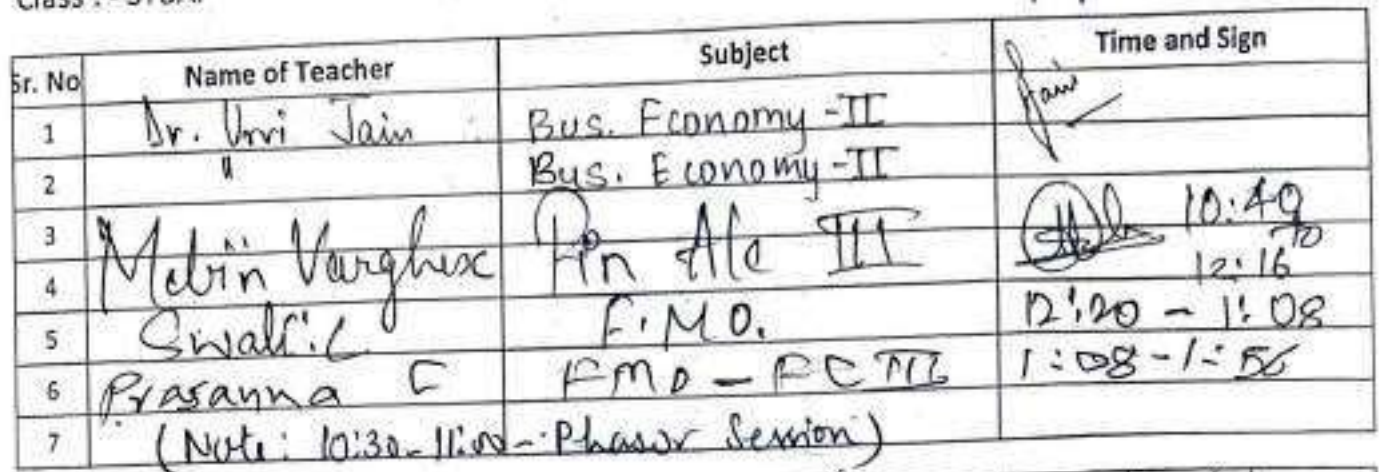 Sr. No Name of Teacher Subject Time and Sign
1 Dr. Urvi Jain Bus. Economy -II Jain
2 " Bus. Economy -II
3 Melvin Varghese Fin A/c III 10:40
4 To 12:16
5 Swati.C F.M.O. 12:20 - 1:08
6 Prasanna C FMO - FC III 1:08-1:56
7 (Note: 10:30-11:00 - Session)